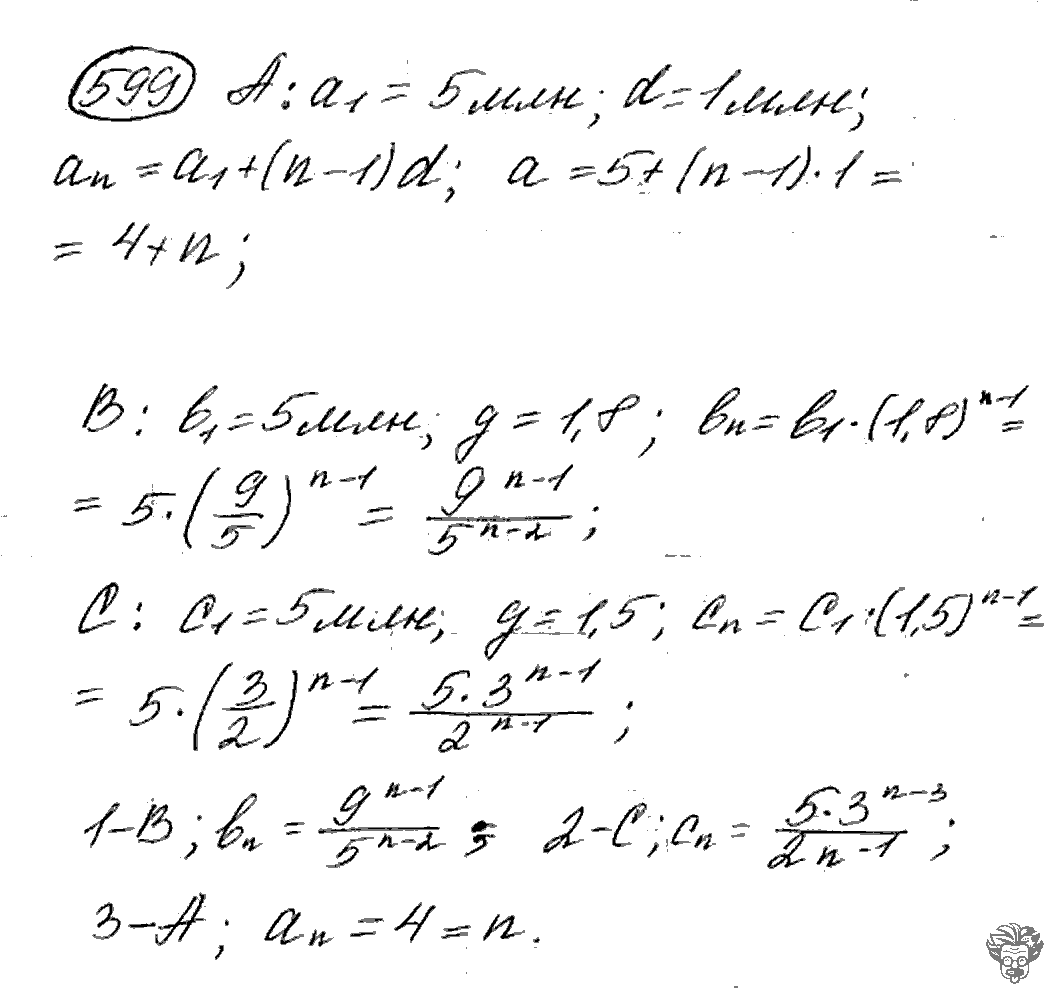 599 A: a₁ = 5 млн; d = 1 млн;
aₙ = a₁ + (n – 1)d; a = 5 + (n – 1) · 1 =
= 4 + n;
B: b₁ = 5 млн; g = 1,8; bₙ = b₁ · (1,8)ⁿ⁻¹ =
= 5 · (9/5)ⁿ⁻¹ = 9ⁿ⁻¹/5ⁿ⁻²;
C: c₁ = 5 млн; g = 1,5; cₙ = c₁ · (1,5)ⁿ⁻¹ =
= 5 · (3/2)ⁿ⁻¹ = 5 · 3ⁿ⁻¹/2ⁿ⁻¹;
1 – B; bₙ = 9ⁿ⁻¹/5ⁿ⁻²; 2 – C; cₙ = 5 · 3ⁿ⁻³/2n⁻¹;
3 – A; aₙ = 4 = n.